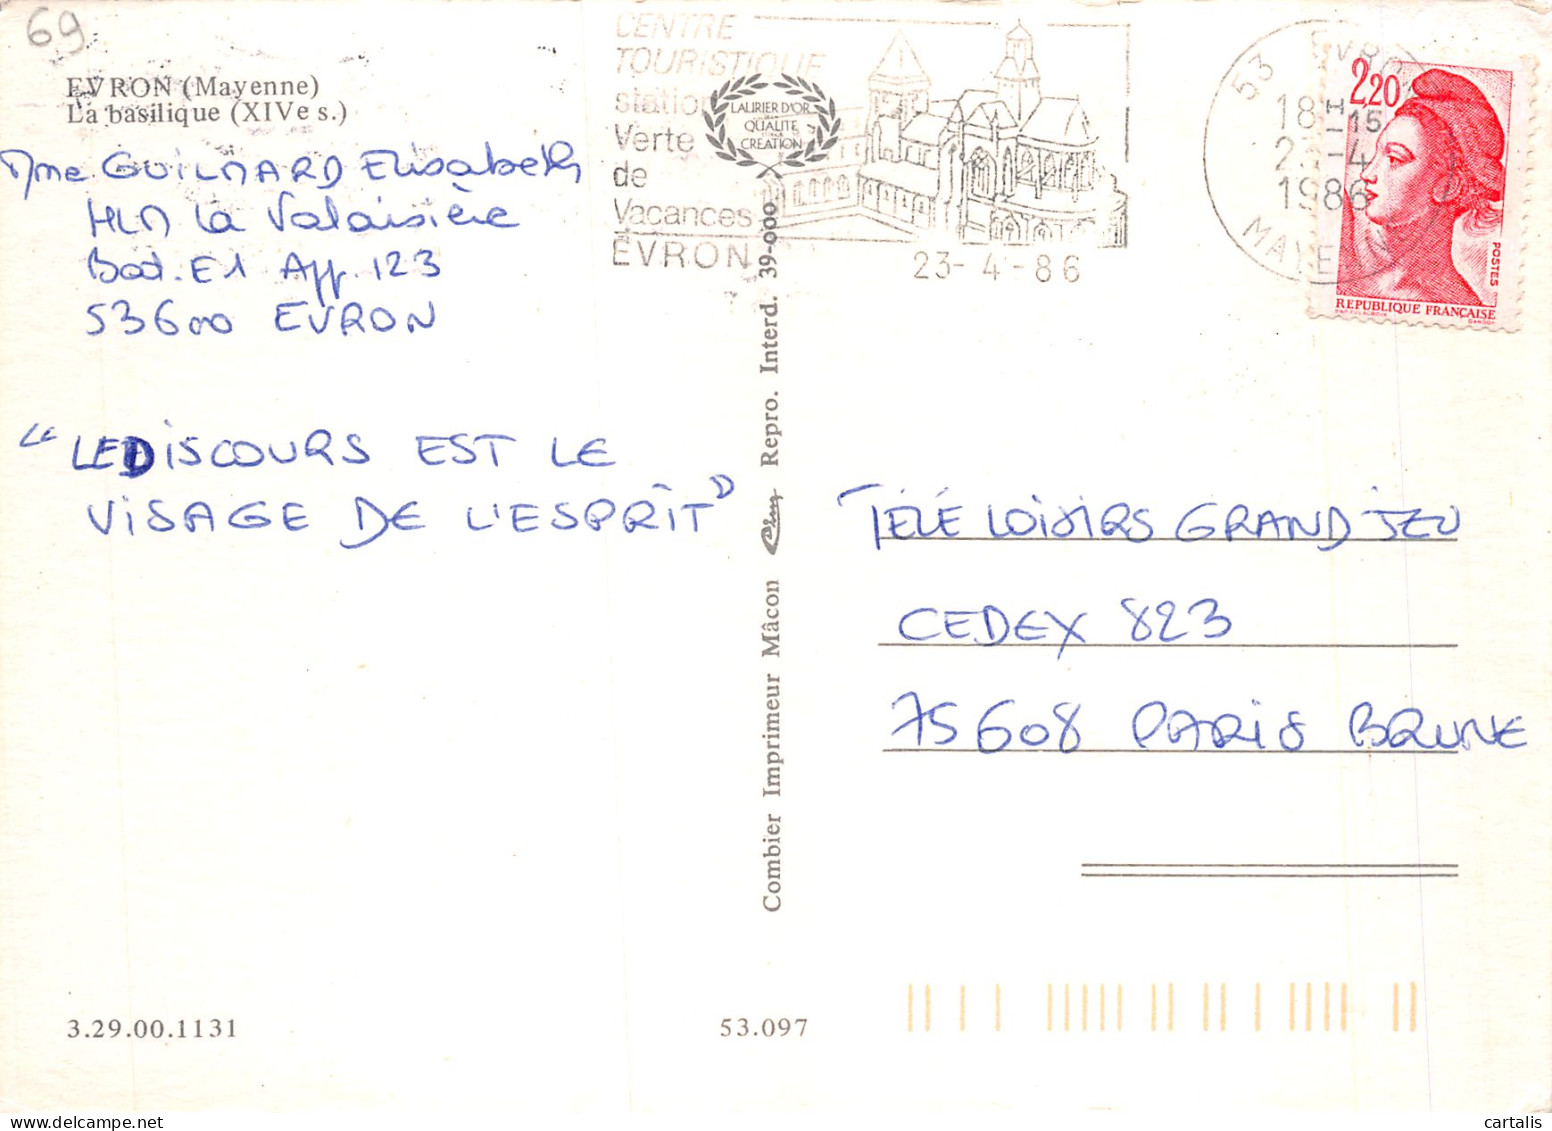 69
EVRON (Mayenne)
La basilique (XIVe s.)
Mme GUILMARD Elisabeth
HLM La Valaisière
Bat. E1 App. 123
53600 EVRON
"LE DISCOURS EST LE
VISAGE DE L'ESPRIT"
CENTRE
TOURISTIQUE
station
Verte
de
Vacances
EVRON
23-4-86
LAURIER D'OR
QUALITE
CREATION
53 EVRON
18H15
2 -4
1986
MAYENNE
2,20
POSTES
REPUBLIQUE FRANÇAISE
GANDON
Combier Imprimeur Mâcon Cim Repro. Interd. 39-000
TÉLÉ LOISIRS GRAND JEU
CEDEX 823
75608 PARIS BRUNE
3.29.00.1131
53.097
cartalis